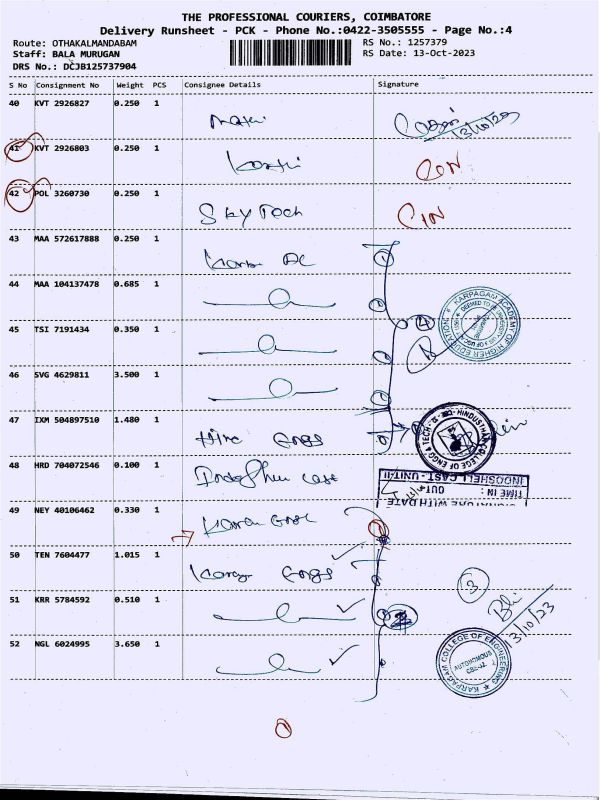 THE PROFESSIONAL COURIERS, COIMBATORE
Delivery Runsheet - PCK - Phone No.:0422-3505555 - Page No.:4
Route: OTHAKALMANDABAM
RS No.: 1257379
Staff: BALA MURUGAN
RS Date: 13-Oct-2023
DRS No.: DCJB125737904
S No Consignment No Weight PCS Consignee Details Signature
40 KVT 2926827 0.250 1
13/10/23
41 KVT 2926803 0.250 1
42 POL 3260730 0.250 1 Sky Tech
43 MAA 572617888 0.250 1
44 MAA 104137478 0.685 1
4
KARPAGAM ACADEMY OF HIGHER EDUCATION
45 TSI 7191434 0.350 1
46 SVG 4629811 3.500 1
47 IXM 504897510 1.480 1
HINDUSTHAN COLLEGE OF ENGG & TECH
48 HRD 704072546 0.100 1
INDOSHELL CAST - UNIT-II
TIME IN :
OUT:
SIGNATURE WITH DATE
49 NEY 40106462 0.330 1
50 TEN 7604477 1.015 1
3
51 KRR 5784592 0.510 1
2
13/10/23
52 NGL 6024995 3.650 1
KARPAGAM COLLEGE OF ENGINEERING
AUTONOMOUS
CBE-32